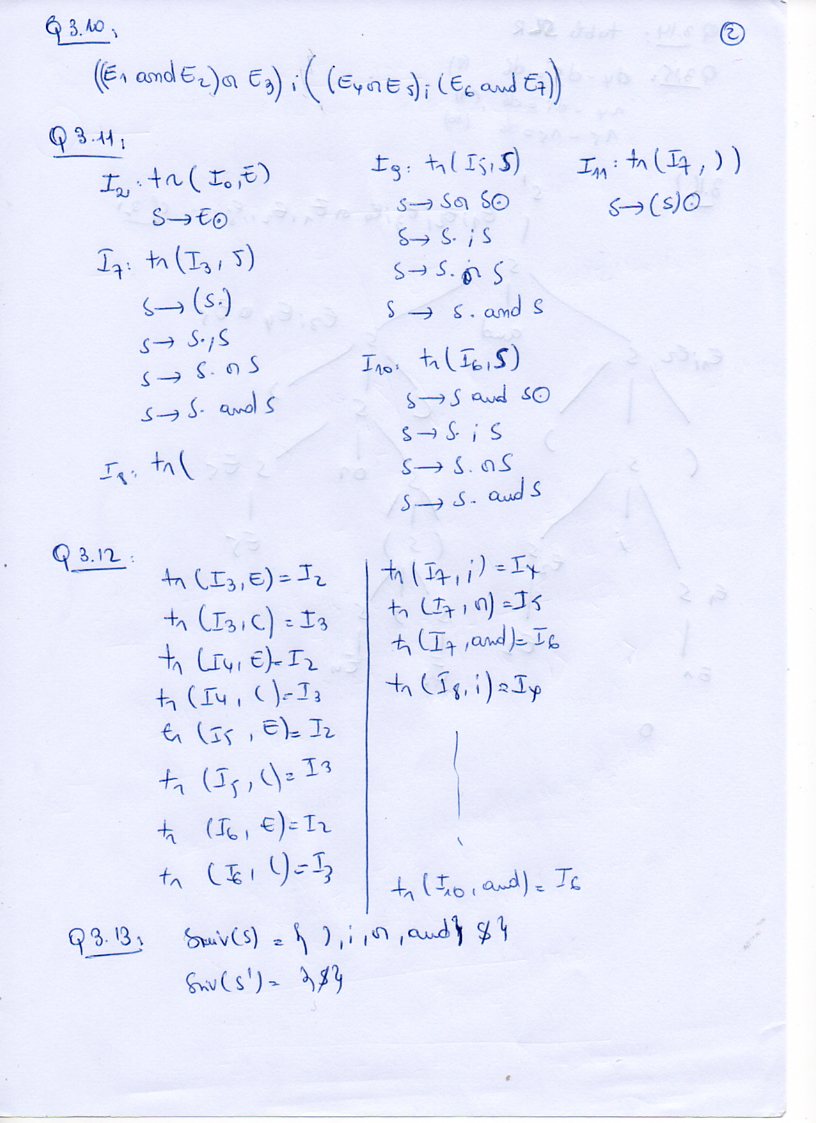 Q 3.10: ②
((E1 and E2) or E3) ; ( (E4 or E5) ; (E6 and E7))
Q 3.11:
I2: tr( I0, E)
S → E⊙
I7: tr(I3, S)
S → (S.)
S → S.;S
S → S. or S
S → S. and S
I8: tr(
I9: tr(I5, S)
S → S or S⊙
S → S. ; S
S → S. or S
S → S. and S
I10: tr(I6, S)
S → S and S⊙
S → S. ; S
S → S. or S
S → S. and S
I11: tr(I7, ))
S → (S)⊙
Q 3.12:
tr (I3, E) = I2
tr (I3, () = I3
tr (I4, E) = I2
tr (I4, () = I3
tr (I5, E) = I2
tr (I5, () = I3
tr (I6, E) = I2
tr (I6, () = I3
tr (I7, ;) = I4
tr (I7, or) = I5
tr (I7, and) = I6
tr (I8, ;) = I4
tr (I10, and) = I6
Q 3.13: Suiv(S) = { ), ;, or, and, $ }
Suiv(S') = {$}